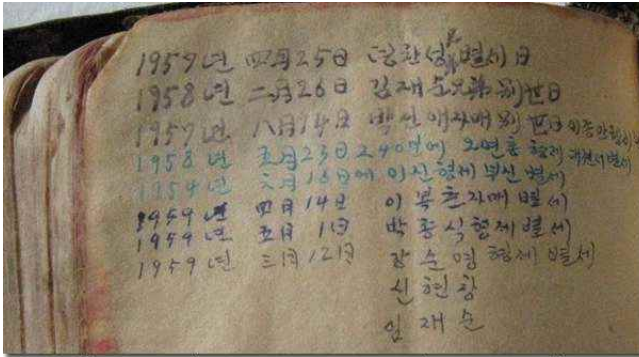 1957년 四月25日 별세日
1958년 二月26日 김재순兄弟別世日
1957년 八月14日 박신애자매別世日
1958년 五月23日 24역에 오면홍형제 별세
1954년 六月16日에 이진형제 부친 별세
1959년 四月14日 이복춘자매별세
1959년 五月 1日 박홍식형제별세
1959년 三月12日 장순영형제별세
신현창
임재순